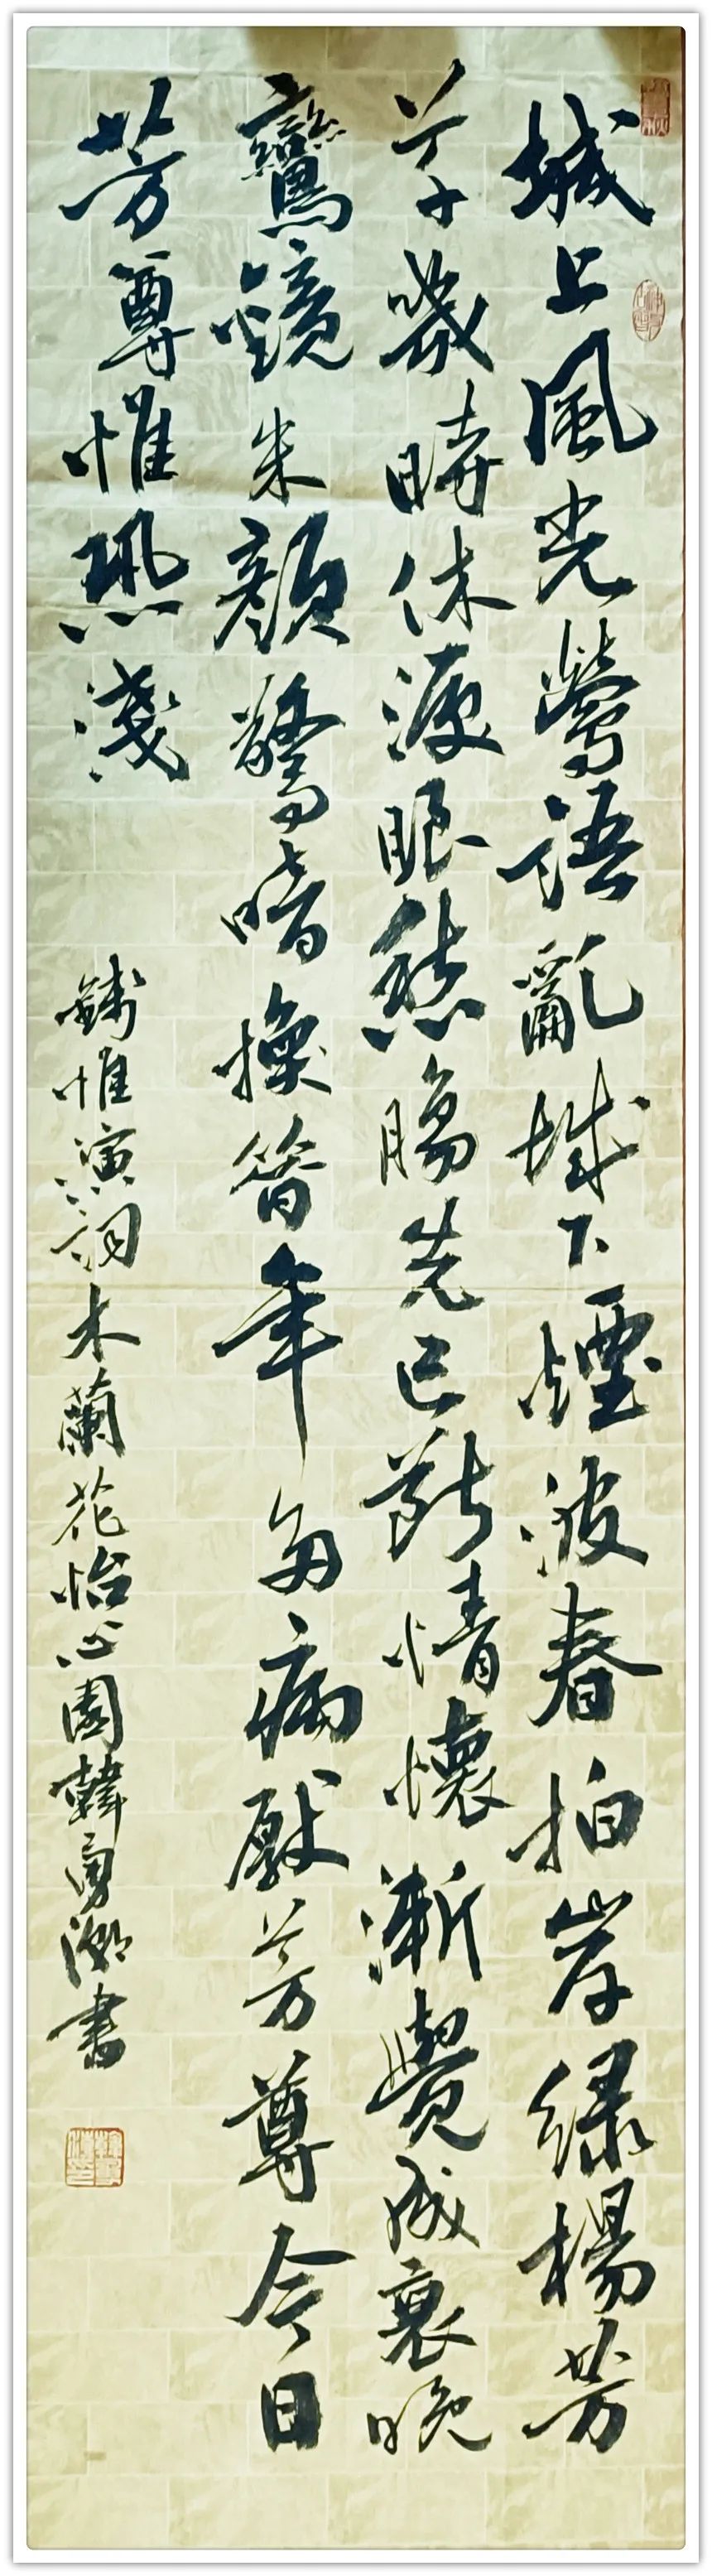 城上風光鶯語亂城下煙波春拍岸綠楊芳
草幾時休淚眼愁腸先已斷情懷漸覺成衰晚
鸞鏡朱顏驚暗換昔年多病厭芳尊今日
芳尊惟恐淺
錢惟演詞木蘭花怡心園韓勇書